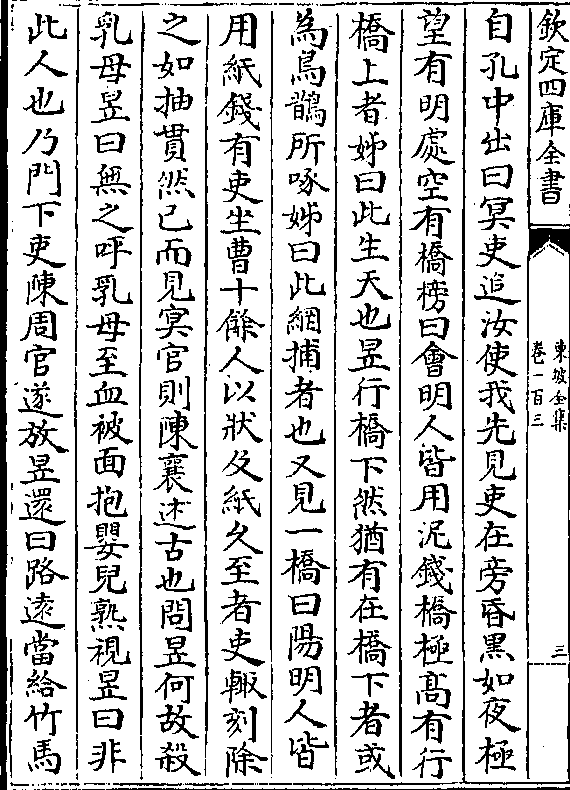 欽定四庫全書
東坡全集
卷一百三
三
自孔中出曰冥吏追汝使我先見吏在旁昏黒如夜極
望有明處空有橋榜曰會明人皆用泥錢橋極髙有行
橋上者姊曰此生天也昱行橋下然猶有在橋下者或
為鳥鵲所啄姊曰此網捕者也又見一橋曰陽明人皆
用紙錢有吏坐曹十餘人以狀及紙久至者吏輙刻除
之如抽貫然已而見冥官則陳襄述古也問昱何故殺
乳母昱曰無之呼乳母至血被面抱嬰兒熟視昱曰非
此人也乃門下吏陳周官遂放昱還曰路逺當給竹馬